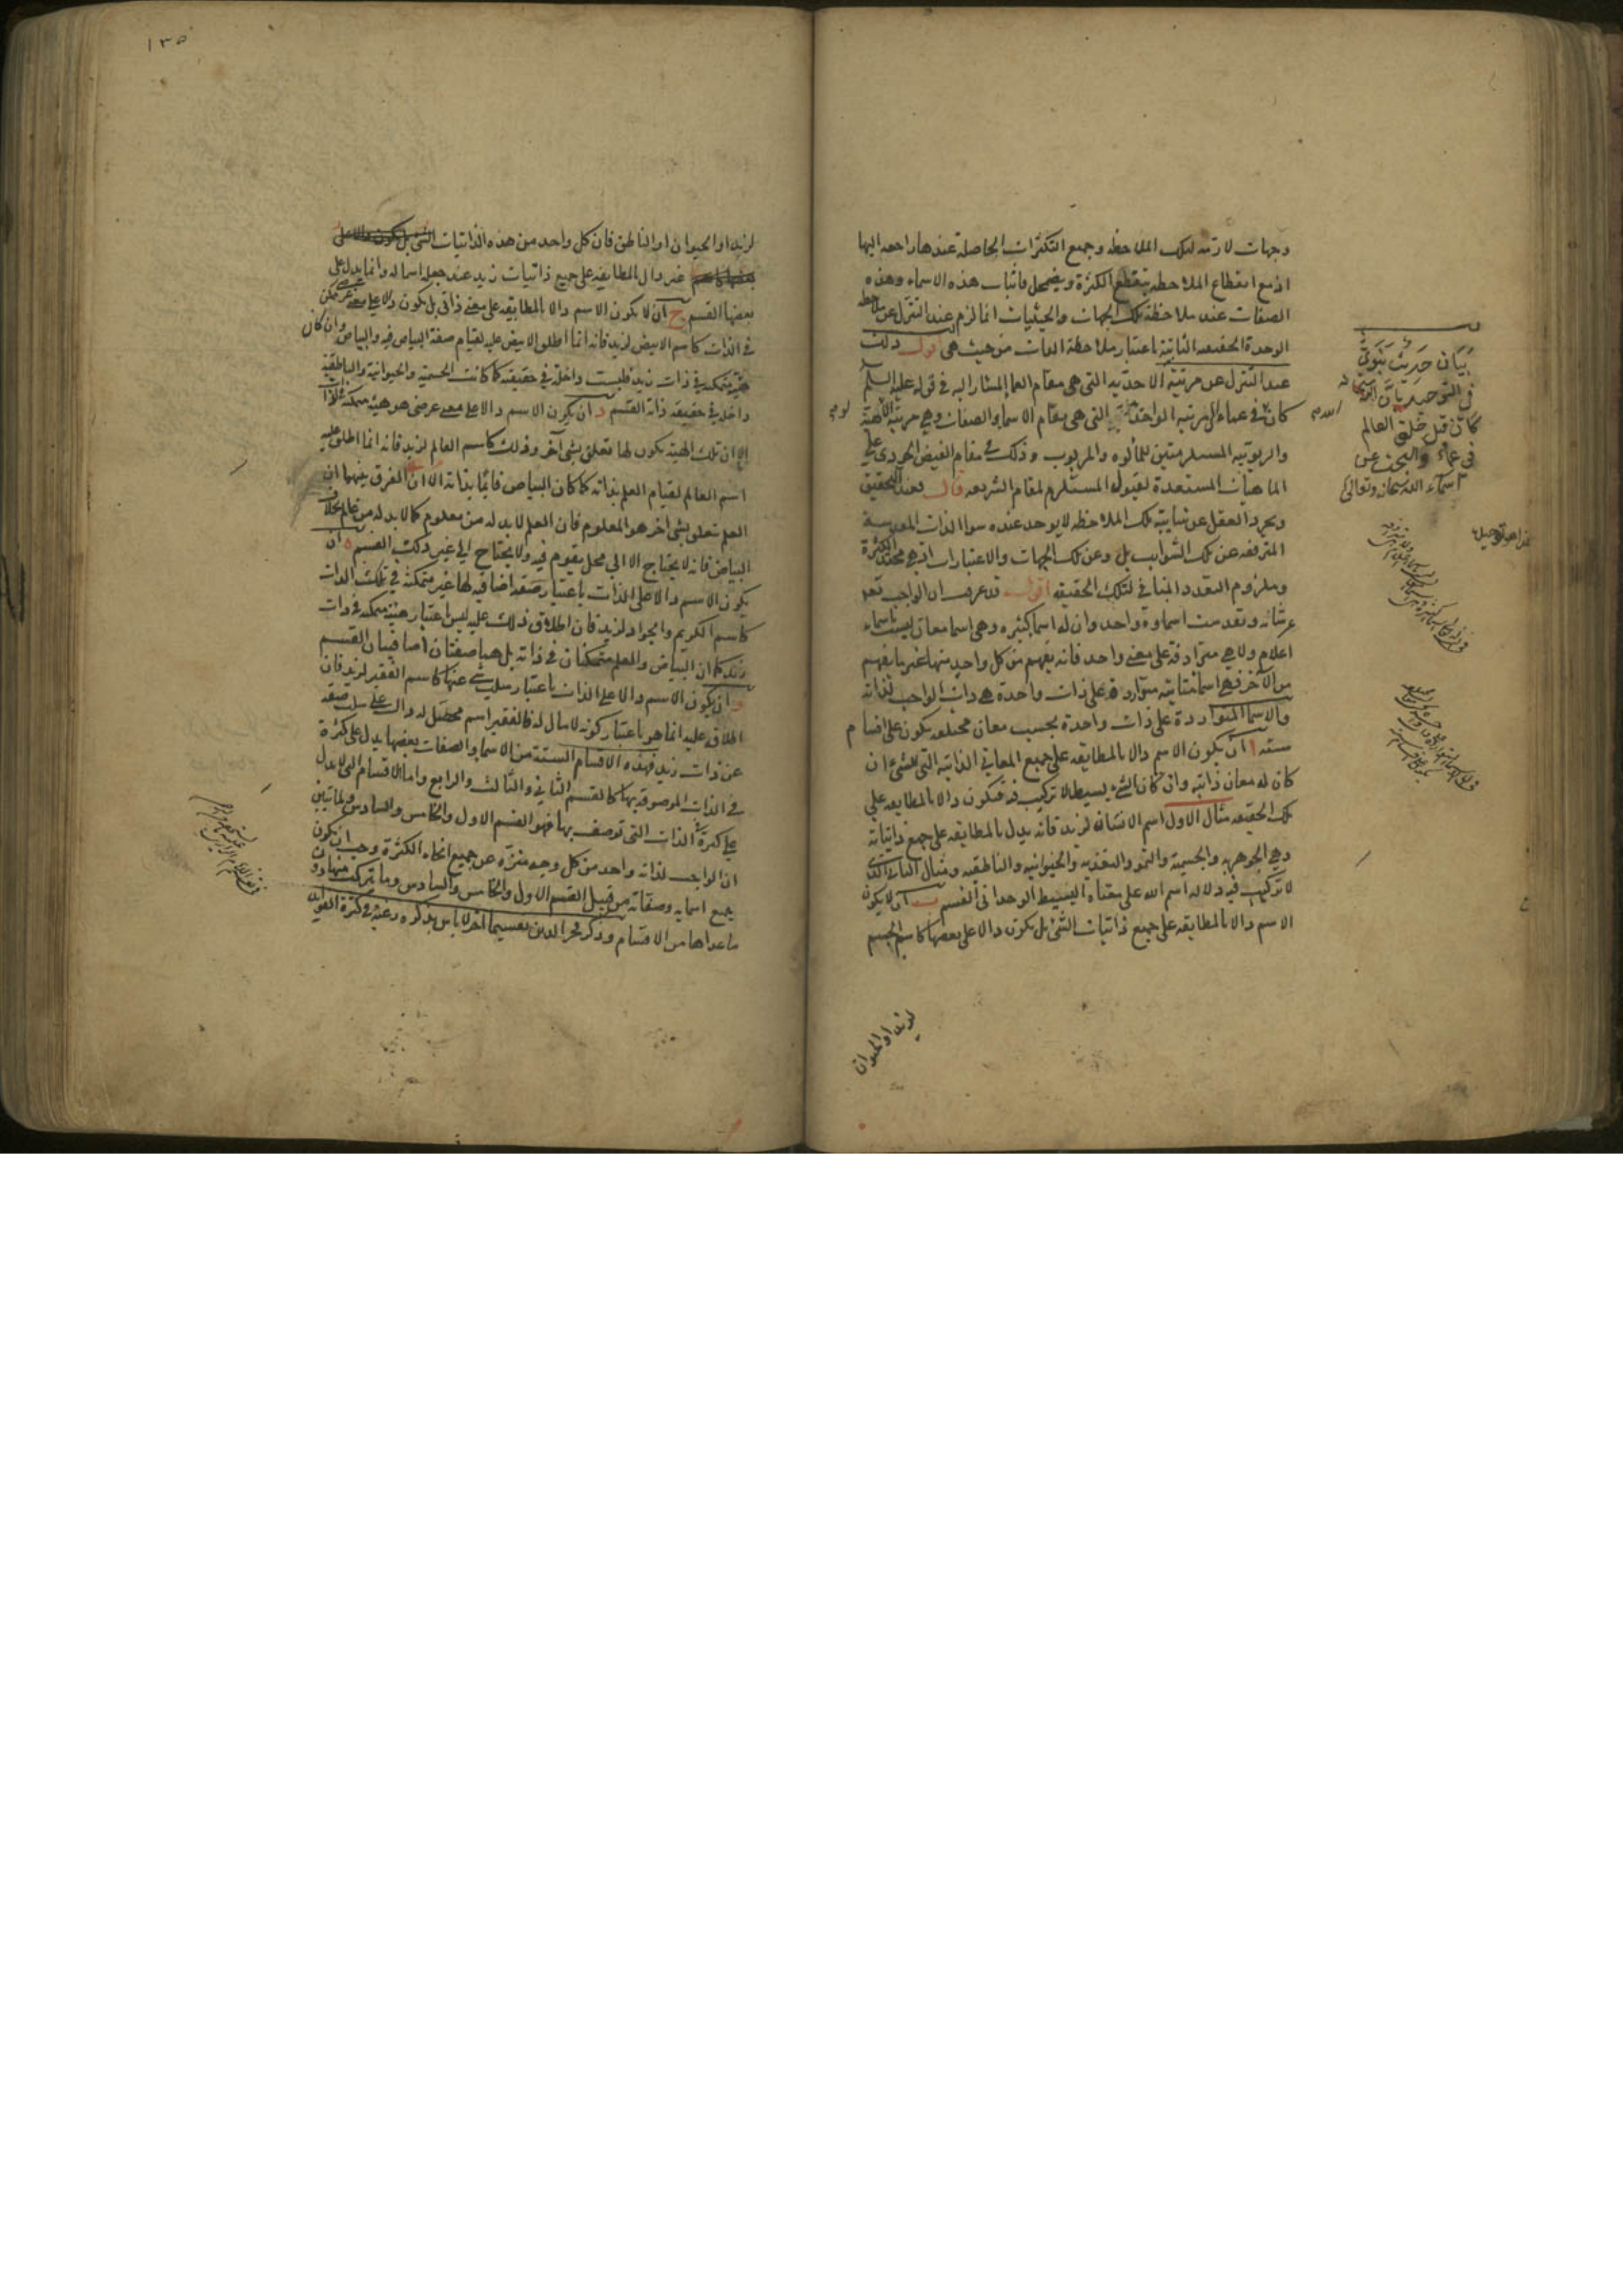 وجهات لازمة لتلك الملاحظه وجميع التكثرات الحاصلة عندها راجعه اليها
اذ مع انقطاع الملاحظه ينقطع الكثرة ويضمحل فاثبات هذه الاسماء وهذه
الصفات عند ملاحظة تلك الجهات والحيثيات انما لزم عند التنزل عن ملاحظه
الوحدة الحقيقيه الثابتة باعتبار ملاحظة الذات من حيث هي اقول ذلك
عند التنزل عن مرتبة الاحديه التي هي مقام العما المشار اليه في قوله عليه السلم
كان في عماء الى مرتبه الواحديه التي هي مقام الاسماء والصفات وهي مرتبة الالهية
والربوبيه المستلزمتين للمألوه والمربوب وذلك في مقام الفيض الجودي على
الماهيات المستعدة لقبوله المستلزم لمقام الشريعه قال فعند التحقيق
وتجرد العقل عن شايبة تلك الملاحظه لا يوجد عنده سوا الذات المقدسة
المترفعه عن تلك الشوايب بل وعن تلك الجهات والاعتبارات التي هي محتد الكثرة
وملزوم التعدد المنافي لتلك الحقيقه اقول قد عرفت ان الواجب تعالى
عز شانه وتقدست اسماوه واحد وان له اسما كثيره وهي اسما معان ليست اسماء
اعلام ولا هي مترادفة على معنى واحد فانه يفهم من كل واحد منها غير ما يفهم
من الآخر فهي اسما متباينه متواردة على ذات واحدة هي ذات الواجب لذاته
والاسما المتواردة على ذات واحدة بحسب معان مختلفه يكون على اقسام
ستة ا ان يكون الاسم دالا بالمطابقه على جميع المعاني الذاتيه التي للشئ ان
كان له معان ذاتيه وان كان الشئ بسيطا لا تركيب فيه فيكون دالا بالمطابقه على
تلك الحقيقه مثال الاول اسم الانسان لزيد فانه يدل بالمطابقه على جميع ذاتياته
وهي الجوهريه والجسمية والنمو والتغذيه والحيوانيه والناطقيه ومثال الثاني الذي
لا تركيب فيه دلاله اسم الله على معناه البسيط الوحداني القسم ب ان لا يكون
الاسم دالا بالمطابقه على جميع ذاتيات الشئ بل يكون دالا على بعضها كاسم الجسم
لزيد او الحيوان
بيان حديث نبوي
في التوحيد بان الله سبحانه
كان قبل خلق العالم
في عماء والبحث عن
اسماء الله سبحانه وتعالى
١٣٥
لزيد او الحيوان او الناطق فان كل واحد من هذه الذاتيات
غير دال بالمطابقه على جميع ذاتيات زيد عند جعله اسما له وانما يدل على
بعضها القسم ج ان لا يكون الاسم دالا بالمطابقه على معنى ذاتي بل يكون دالا على معنى عرضي متمكن
في الذات كاسم الابيض لزيد فانه انما اطلق الابيض عليه لقيام صفة البياض فيه والبياض وان كان
هيئة متمكنه في ذات زيد فليست داخلة في حقيقته كما كانت الجسمية والحيوانية والناطقية
داخله في حقيقة ذاته القسم د ان يكون الاسم دالا على معنى عرضي هو هيئة متمكنة في الذات
الا ان تلك الهيئة يكون لها تعلق بشئ آخر وذلك كاسم العالم لزيد فانه انما اطلق عليه
اسم العالم لقيام العلم بذاته كما كان البياض قائما بذاته الا ان الفرق بينهما ان
العلم تعلق بشئ آخر هو المعلوم فان العلم لا بد له من معلوم كما لا بد له من عالم بخلاف
البياض فانه لا يحتاج الا الى محل يقوم فيه ولا يحتاج الى غير ذلك القسم ه ان
يكون الاسم دالا على الذات باعتبار صفة اضافيه لها غير متمكنة في تلك الذات
كاسم الكريم والجواد لزيد فان اطلاق ذلك عليه ليس باعتبار هيئة متمكنه في ذات
زيد كما ان البياض والعلم متمكنان في ذاته بل هما صفتان اضافيتان القسم
و ان يكون الاسم دالا على الذات باعتبار سلب شئ عنها كاسم الفقير لزيد فان
اطلاقه عليه انما هو باعتبار كونه لا مال له فالفقير اسم محصل له دال على سلب صفه
عن ذات زيد فهذه الاقسام الستة من الاسماء والصفات بعضها يدل على كثرة
في الذات الموصوفه بها كالقسم الثاني والثالث والرابع واما الاقسام التي لا يدل
على كثرة الذات التي توصف بها فهو القسم الاول والخامس والسادس ولما تبين
ان الواجب لذاته واحد من كل وجه منزه عن جميع انحاء الكثرة وجب ان يكون
جميع اسمايه وصفاته من قبيل القسم الاول والخامس والسادس وما تركب منها دون
ما عداها من الاقسام وذكر فخر الدين تقسيما آخر لا باس بذكره رغبة في كثرة الفوائد